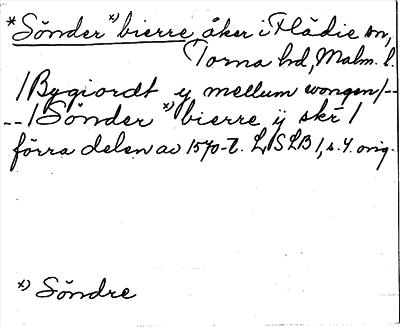 *Sönder ˣ⁾ bierre, åker i Flädie sn,
Torna hd, Malm. l.
/Bygiordt ÿ mellum wongen/--
--/Sönder ˣ⁾ bierre ÿ skr /
förra delen av 1570-t. LSLB 1, s. 4. orig.
ˣ⁾ Söndre